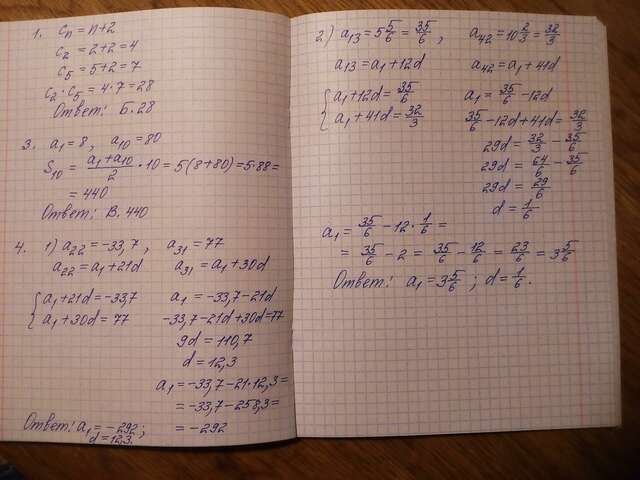 1. cₙ = n+2
c₂ = 2+2 = 4
c₅ = 5+2 = 7
c₂ · c₅ = 4·7 = 28
Ответ: Б. 28
3. a₁ = 8, a₁₀ = 80
S₁₀ = (a₁+a₁₀)/2 · 10 = 5(8+80) = 5·88 =
= 440
Ответ: В. 440
4. 1) a₂₂ = -33,7, a₃₁ = 77
a₂₂ = a₁+21d a₃₁ = a₁+30d
{ a₁+21d = -33,7 a₁ = -33,7-21d
{ a₁+30d = 77 -33,7-21d+30d=77
9d = 110,7
d = 12,3
a₁ = -33,7-21·12,3 =
= -33,7-258,3 =
= -292
Ответ: a₁ = -292;
d = 12,3.
2) a₁₃ = 5 5/6 = 35/6, a₄₂ = 10 2/3 = 32/3
a₁₃ = a₁+12d a₄₂ = a₁+41d
{ a₁+12d = 35/6 a₁ = 35/6 - 12d
{ a₁+41d = 32/3 35/6 - 12d + 41d = 32/3
29d = 32/3 - 35/6
29d = 64/6 - 35/6
29d = 29/6
d = 1/6
a₁ = 35/6 - 12 · 1/6 =
= 35/6 - 2 = 35/6 - 12/6 = 23/6 = 3 5/6
Ответ: a₁ = 3 5/6; d = 1/6.